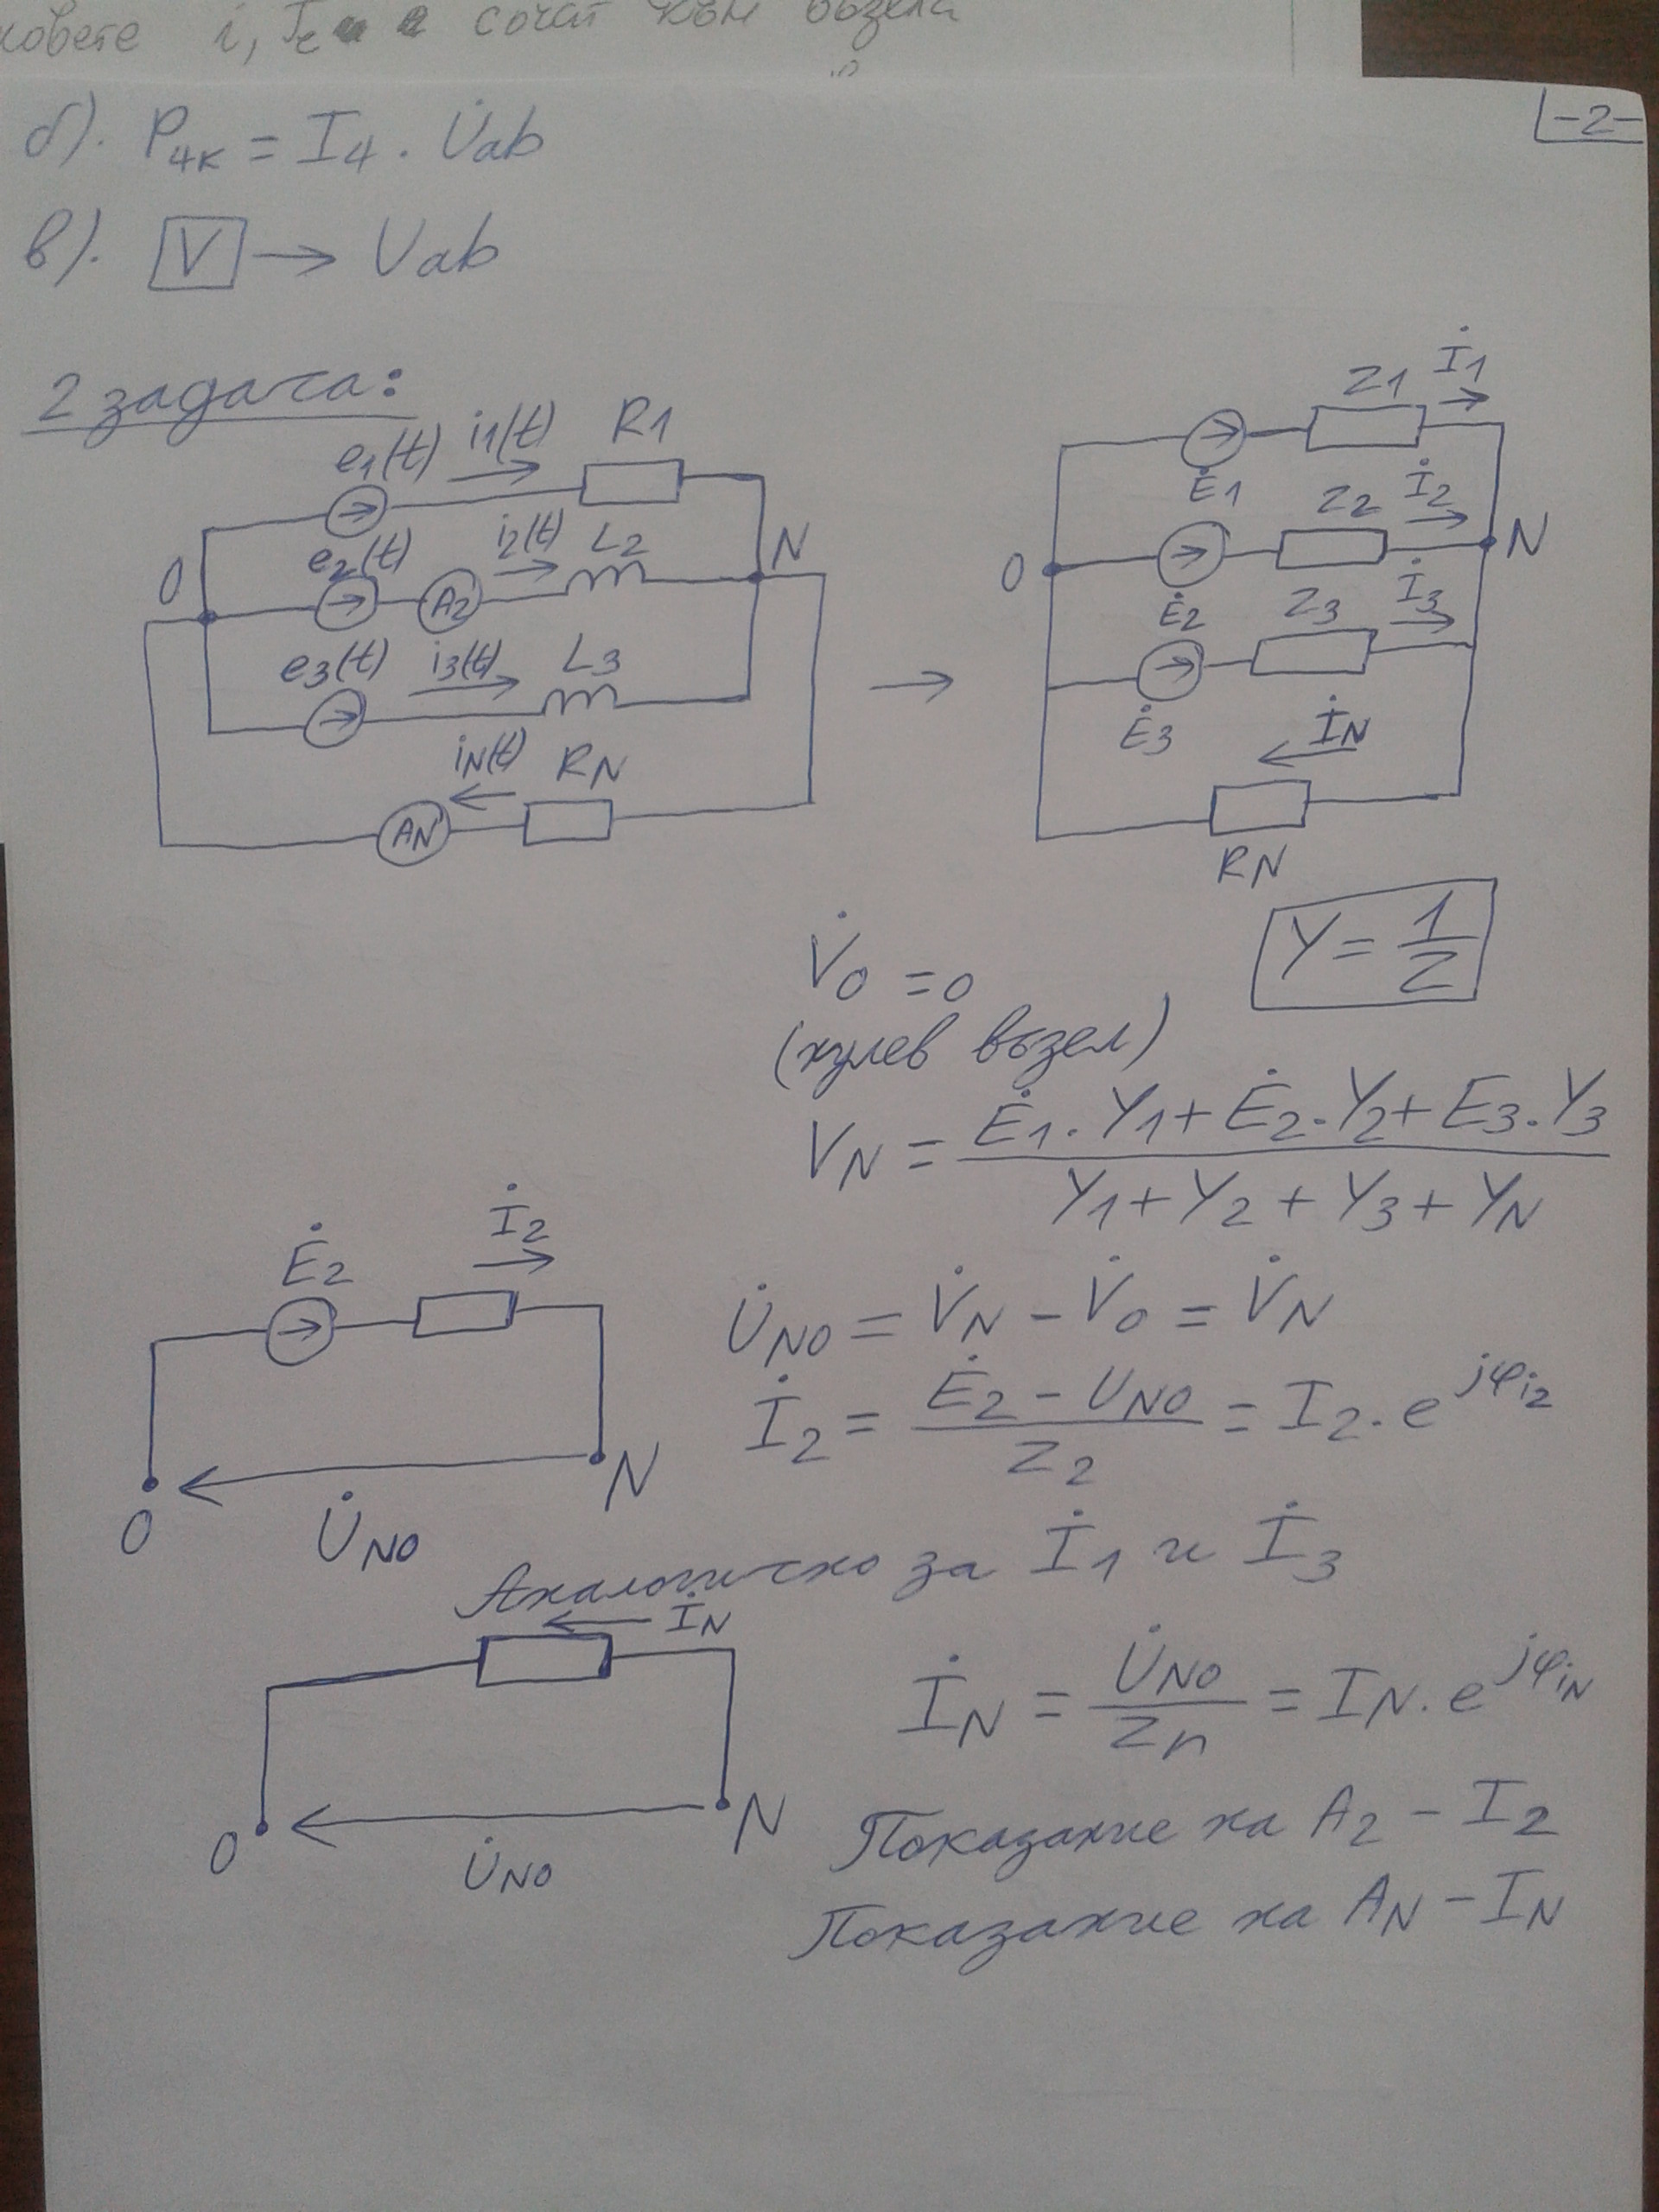 i, сочат към възела
-2-
б). P4к = I4 . U̇ab
в). V → Uab
2 задача:
e1(t) i1(t) R1
e2(t) A2 i2(t) L2
O N
e3(t) i3(t) L3
iN(t) RN
AN
→
Z1 İ1
Ė1
Z2 İ2
O N
Ė2 Z3 İ3
Ė3 İN
RN
V̇o = 0
(нулев възел)
Y = 1/Z
VN = (Ė1.Y1 + Ė2.Y2 + E3.Y3)/(Y1 + Y2 + Y3 + YN)
Ė2 İ2
O N
U̇NO
U̇NO = V̇N - V̇O = V̇N
İ2 = (Ė2 - UNO)/Z2 = I2 . e^jφi2
Аналогично за İ1 и İ3
İN
O N
U̇NO
İN = U̇NO/Zn = IN . e^jφiN
Показание на A2 - I2
Показание на AN - IN